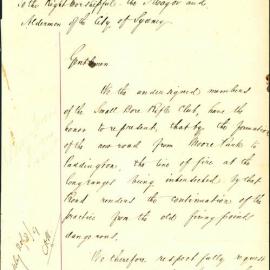 To the Right Worshipful the Mayor and
Aldermen of the City of Sydney
Gentlemen.
We the undersigned members
of the Small Bore Rifle Club, have the
honor to represent, that by the formation
of the new road from Moore Park to
Paddington, the line of fire at the
long ranges being intersected by that
Road renders the continuation of the
practice from the old firing points
dangerous.
We therefore respectfully request